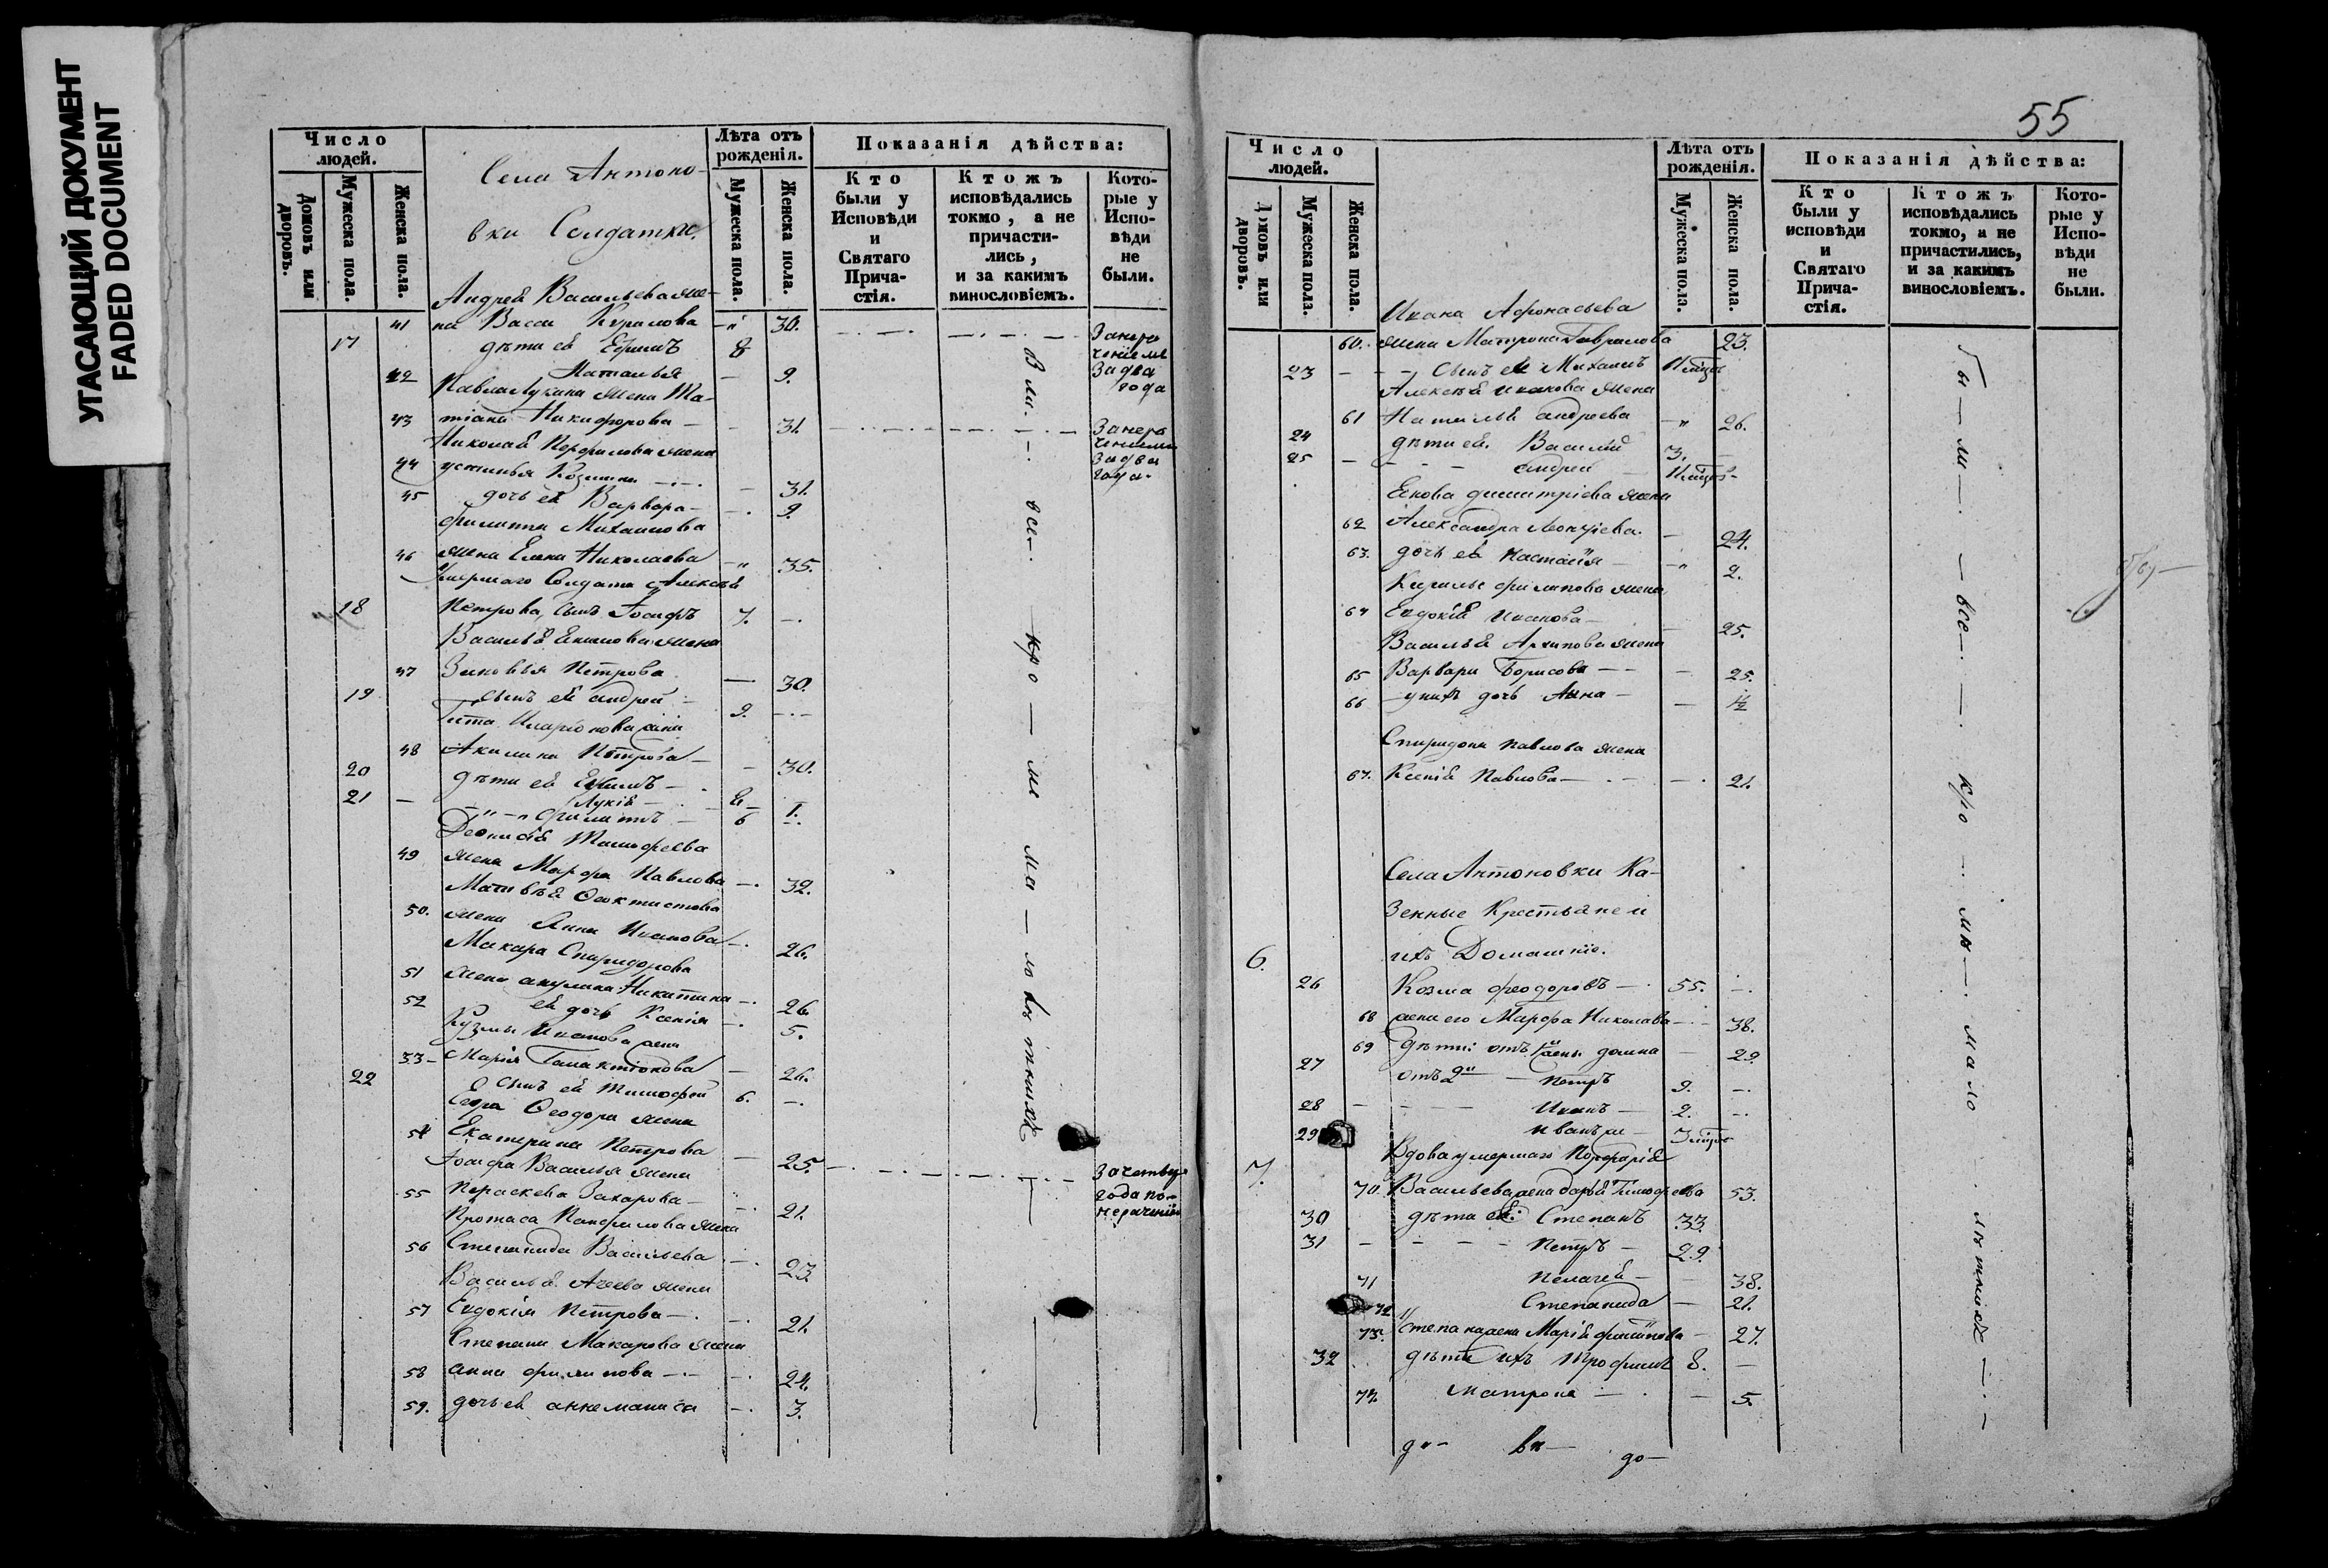 УГАСАЮЩИЙ ДОКУМЕНТ
FADED DOCUMENT
Число людей.
Домовъ или дворовъ.
Мужеска пола.
Женска пола.
Села Антоно-
вки Солдатки.
Лѣта отъ рожденія.
Мужеска пола.
Женска пола.
Показанія дѣйства:
Кто были у Исповѣди и Святаго Прича-стія.
Ктожъ исповѣдались токмо, а не причасти-лись, и за какимъ винословіемъ.
Кото-рые у Испо-вѣди не были.
Андрея Васильева же-
41 на Васса Кирилова 30.
17 дѣти ея Ефимъ 8
42 Наталья 9.
Павла Лукина жена Та-
43 тіана Никифорова 31.
Николая Перфилова жена
44 устинья Козмина 31.
45 дочь ея Варвара 9.
филипа Михаилова
46 жена Елена Николаева 35.
Умершаго Солдата Алексѣя
18 Петрова, сынъ Іосифъ 7.
Василья Екимова жена
47 Зиновья Петрова 30.
19 сынъ ея андрей 9.
Тита Иларіонова жена
48 Акилина Петрова 30.
20 дѣти ея
21 филипъ 6
Деонисія Тимофеева
49 жена Марфа Павлова 32.
Матвѣя Феоктистова
50. жена Анна Иванова 26.
Макара Спиридонова
51 жена акулина Никитина 26.
52 ея дочь Ксенія 5.
Кузмы Иванова жена
53 Марія Галактіонова 26.
22 сынъ ея Тимофей 6.
Егора Феодора жена
54 Екатерина Петрова 25.
Іосифа Василья жена
55 Параскева Захарова 21.
Протаса Панфилова жена
56 Степанида Васильева 23
Василья Агеева жена
57 Евдокія Петрова 21.
Степана Макарова жена
58 анна филипова 24.
59. дочь ея 3.
За нера
ченіемъ
За два
года
За нера
ченіемъ
За два
года.
За четыре
года по
нераченію
Были все кро ме ма лолѣтнихъ
55
Число людей.
Домовъ или дворовъ.
Мужеска пола.
Женска пола.
Лѣта отъ рожденія.
Мужеска пола.
Женска пола.
Показанія дѣйства:
Кто были у исповѣди и Святаго Прича-стія.
Ктожъ исповѣдались токмо, а не причастились, и за какимъ винословіемъ.
Кото-рые у Испо-вѣди не были.
Ивана Афонасьева
60. жена Матрона Гаврилова 23.
23 сынъ ея Михаилъ
Алексѣя иванова жена
61 Наталья андреева 26.
24 дѣти ея. Василій 3.
25 андрей
димитріева жена
62 Александра Леонтіева. 24.
63. дочь ея Настасія 2.
Кирилы филипова жена
64 Евдокія Иванова 25.
Василья Архипова жена
65 Варвара Борисова 25.
66 у нихъ дочь Анна 1/2
Спиридона Павлова жена
67. Ксенія Павлова 21.
Села Антоновки Ка-
зенные Крестьяне и
ихъ Домашніе.
6.
26 Козма феодоровъ 55.
68 жена его Марфа Николаева 38.
69 дѣти: отъ жены домна 29
27 отъ 2й Петръ 9.
28 Иванъ 2.
29 иванъ
7. Вдова умершаго Порфирія
70 Васильева жена дарья Тимофеева 53.
30 дѣти ея: Степанъ 33
31 Петръ 29.
71 Пелагея 38.
72 Степанида 21.
73. Степана жена Марія филипова 27.
32 дѣти ихъ Трофимъ 8.
74. Матрона 5.
Бы ли все кро мѣ мало лѣтнихъ